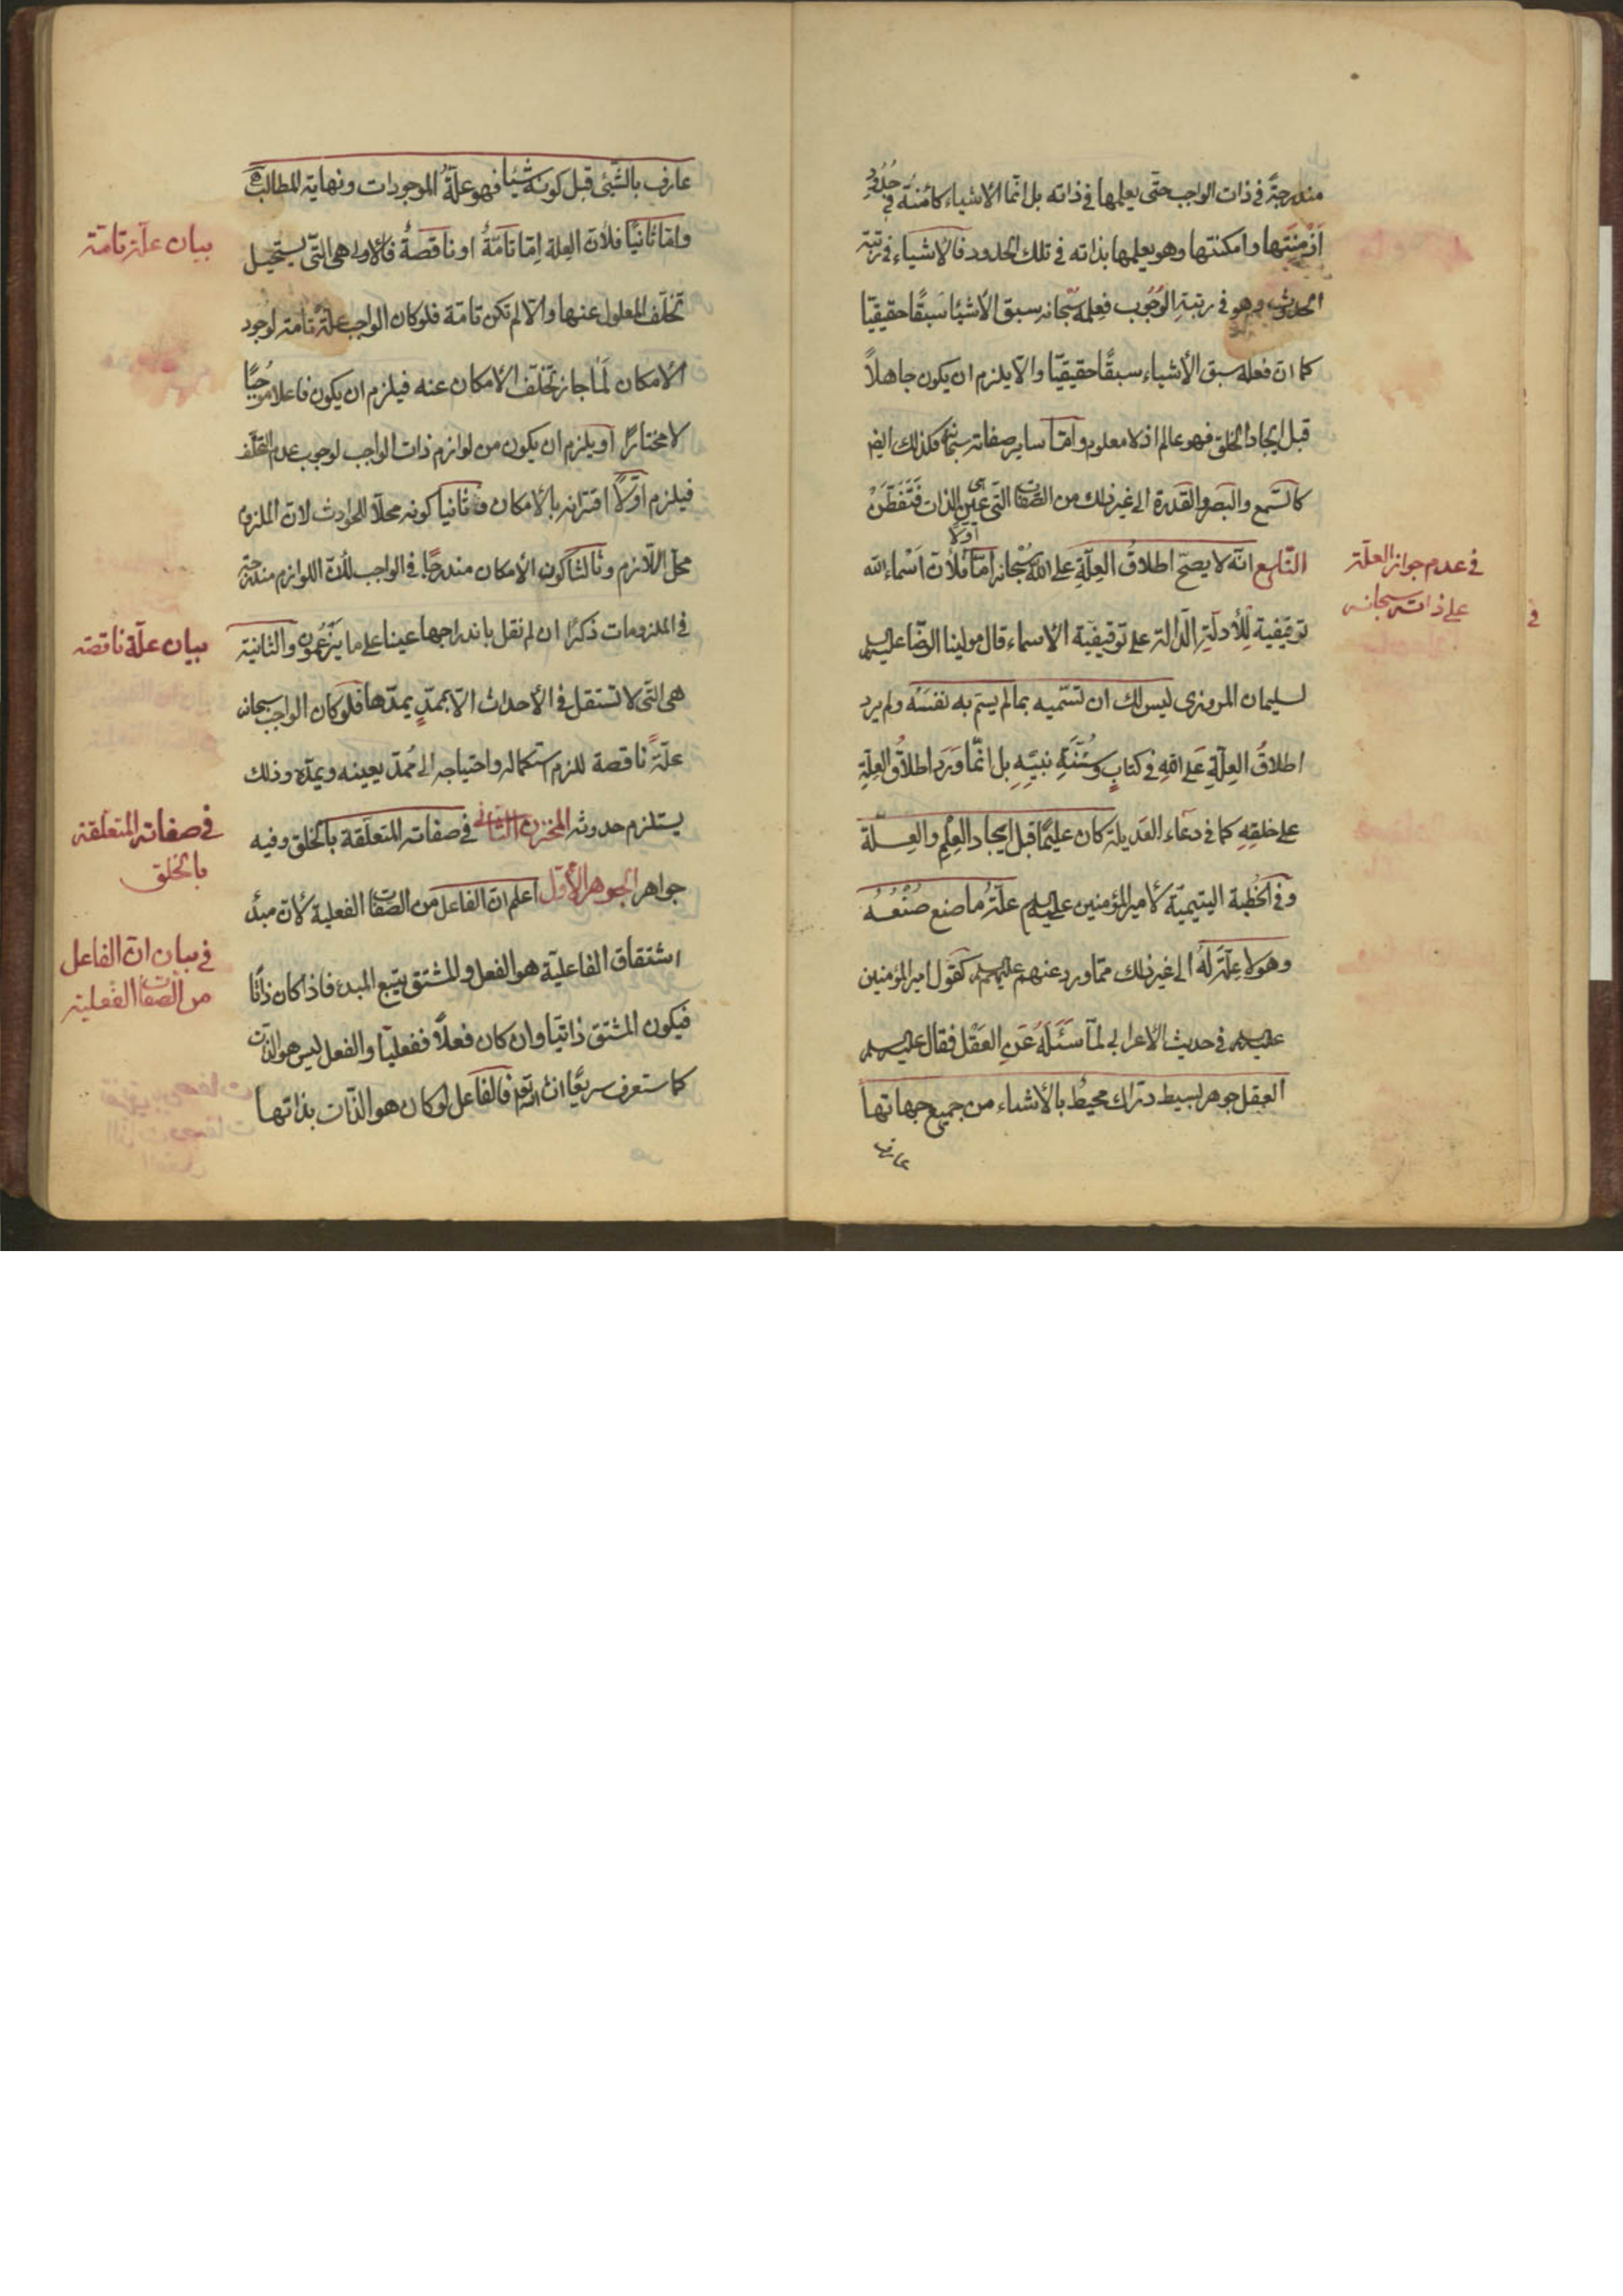 مندرجةً في ذات الواجب حتّى يعلمها في ذاته بل انّما الاشياء كائنةٌ في حُدُودِ
اَزْمِنَتِها وامكنتها وهو يعلمها بذاته في تلك الحدود فالاشياء في رتبة
الحدوث وهو في رتبةِ الوُجُوب فعِلمه سبحانه سبق الأشيا سَبقًا حقيقيًّا
كما انّ فعله سبق الأشياء سبقًا حقيقيًّا والّا يلزم ان يكون جاهلاً
قبل ايجاد الخلق فهو عالم اذ لا معلوم وامّا ساير صفاته سبحانه فكذلك ايضا
كالسّمع والبَصر والقدرة الى غير ذلك من الصّفات التّى هى عين الذات فَتَفَطَّنْ
التّاسع انّه لا يصحّ اطلاقُ العِلّةِ على اللهِ سُبْحانه امّا اوّلًا فلأنّ اَسْماء الله
في عدم جواز العلّة
على ذاته سبحانه
توقيفية لِلأدلّةِ الدّالة على توقيفيّة الاسماء قال مولينا الرّضا عليه السلم
لسليمان المروزى ليس لك ان تسّميه بما لم يسَمّ به نفسَه ولم يرد
اطلاقُ العِلّةِ عَلى اللهِ في كتابٍ وسُنَّةِ نبيّهِ بل انّما وَرَدَ اطلاقُ العِلّةِ
على خلقِهِ كما في دعاء العَديلة كان عليمًا قبل ايجاد العِلْمِ والعِلّة
وفي الخُطبة اليتيميّة لامير المؤمنين عليه السلم علّةُ ما صنع صُنْعُهُ
وهو لا عِلّةَ لَهُ الى غير ذلك ممّا ورد عنهم عليهم السلم كقول امير المؤمنين
عليه السلم في حديث الاعرابي لمّا سَئَلَهُ عَنِ العَقْل فقال عليه السلم
العقل جوهر بسيط درّاك محيطٌ بالأشياء من جميع جهاتها
عارف
عارف بالشّيئ قبل كونه شيئًا فهو علّةُ الموجودات ونهاية المطالب
وامّا ثانيًا فلأنّ العِلة اِمّا تامّةٌ او ناقصةٌ فالاولى هى التّى يستحيل
بيان علّة تامّة
تخلّف المعلول عنها والّا لم تكن تامّة فلو كان الواجب علّةً تامّة لوجود
الامكان لَما جاز تخلّف الأمكان عنه فيلزم ان يكون فاعلا موجَبًا
لا مختارًا او يلزم ان يكون من لوازم ذات الواجب لوجوب عدم التخلّف
فيلزم اوّلاً اقترانه بالأمكان وثانيا كونه محلّا للحوادث لانّ الملزوم
محلّ اللّازم وثالثا كون الأمكان مندرجًا في الواجب لأنّ اللوازم مندرجة
في الملزومات ذكرًا ان لم نقل باندراجها عينا على ما يزعمون والثانية
بيان علّة ناقصة
هى التّى لا تستقل في الأحداث الّا بممدٍّ يمدّها فلو كان الواجب سبحانه
علّةً ناقصة للزم استكماله واحتياجه الى مُمدّ يعينه ويمدّه وذلك
يستلزم حدوثه المخزن الثّانى في صفاته المتعلّقة بالخلق وفيه
في صفاته المتعلّقة
بالخلق
جواهر الجوهر الأوّل اعلم انّ الفاعل من الصّفات الفعلية لأنّ مبدأ
اشتقاق الفاعليّة هو الفعل والمشتق يتبع المبدء فاذا كان ذاتًا
في بيان انّ الفاعل
من الصّفات الفعلية
فيكون المشتق ذاتيّا وان كان فعلاً ففعليّا والفعل ليس هو الذّات
كما ستعرف سريعًا انشاء الله تعالى فالفاعل لو كان هو الذّات بذاتها